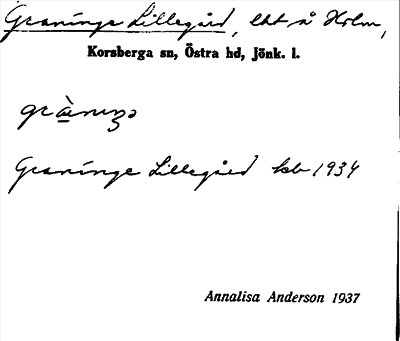 Graninge Lillegård, lht å Holm,
Korsberga sn, Östra hd, Jönk. l.
grànıŋə
Graninge Lillegård kb 1934
Annalisa Anderson 1937